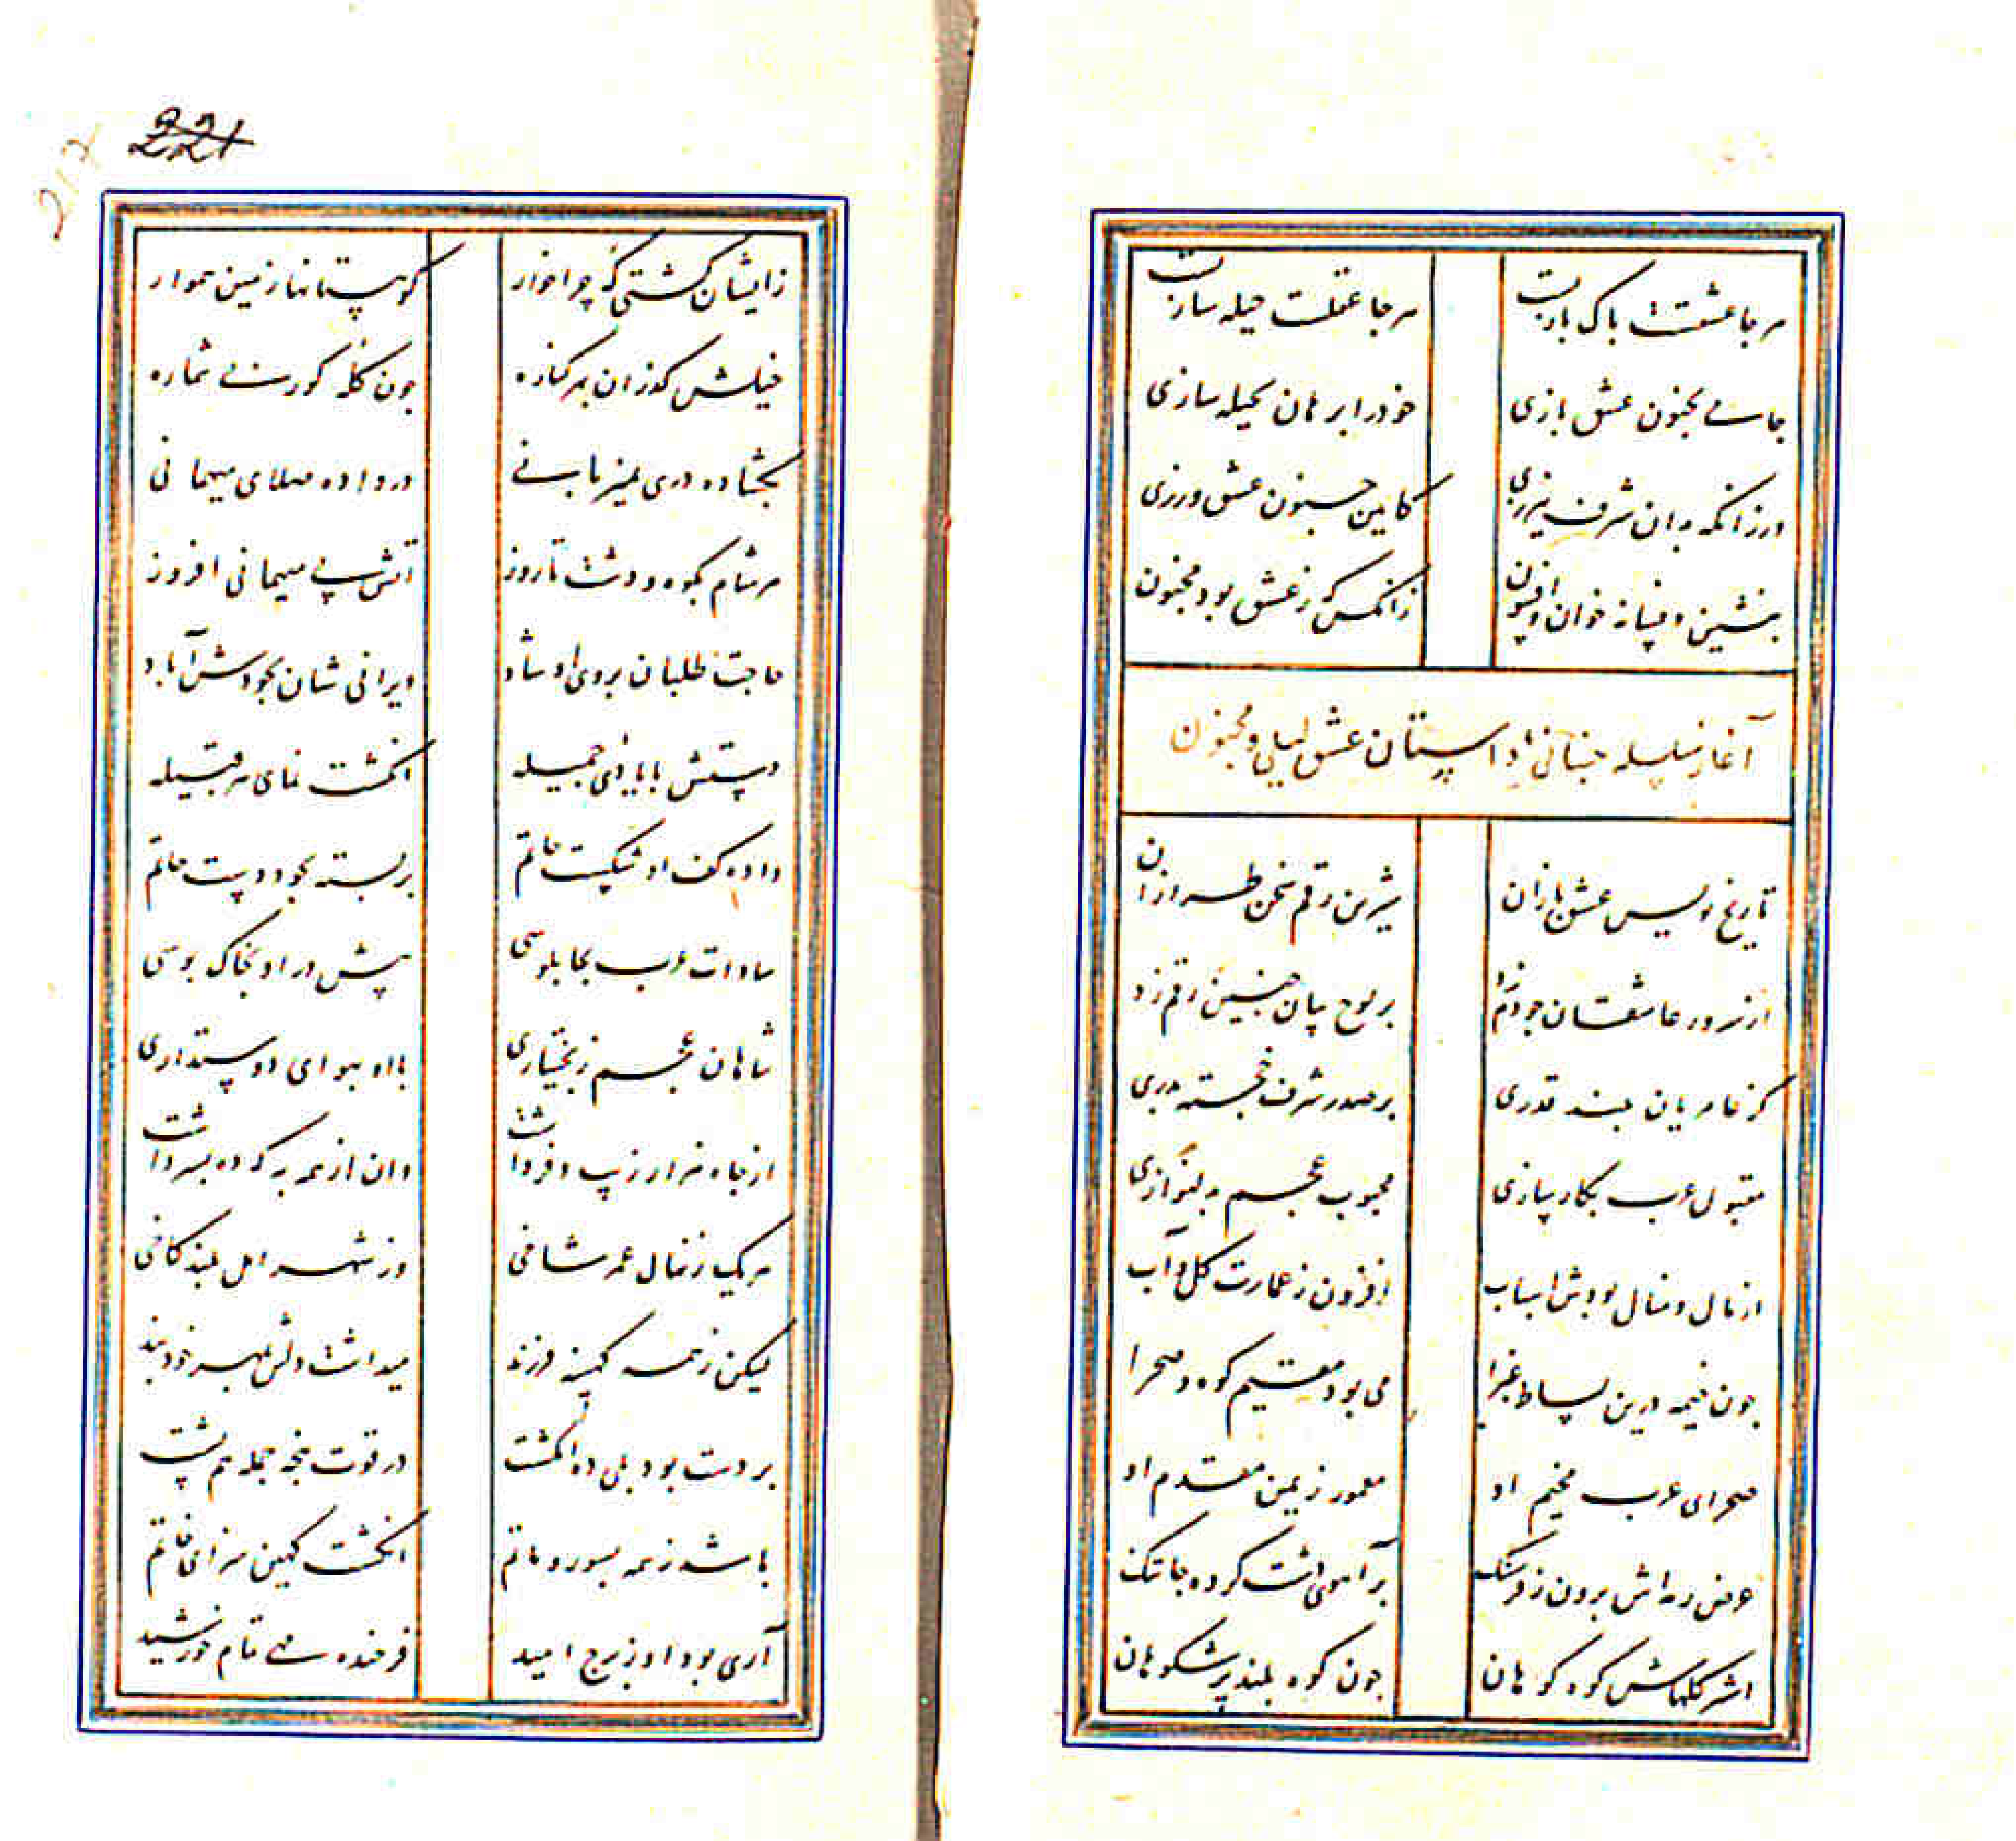 هرجا عشقست پاک بازیست هرجا عقلست حیله سازیست
جامی بجنون عشق بازی خود را برهان ز حیله سازی
ورزانکه بدان شرف نیرزی کایین جنون عشق ورزی
بنشین و فسانه خوان و افسون زانکس که ز عشق بود مجنون
آغاز سلسله جنبانی داستان عشق لیلی و مجنون
تاریخ نویس عشق بازان شیرین رقم سخن طرازان
از سرور عاشقان چو دم زد بر لوح بیان چنین رقم زد
کز عامریان بلند قدری بر صدر شرف خجسته بدری
مقبول عرب بکارسازی محبوب عجم بدلنوازی
از مال و منال بودش اسباب افزون ز عمارت گل و آب
چون خیمه درین بساط غبرا می بود مقیم کوه و صحرا
صحرای عرب مخیم او معمور ز یمن مقدم او
عرض رمه‌اش برون ز فرسنگ بر آهوی دشت کرده جا تنگ
اشتر گلهاش کوه کوهان چون کوه بلند پرشکوهان
221
217
زایشان گشتی گه چراخوار کوهستانها زمین هموار
خیلش گذران بهر کناره چون گله گور بی شماره
بگشاده دری بمیزبانی در داده صلای میهمانی
هر شام بکوه و دشت تا روز آتش پی میهمانی افروز
حاجت طلبان بروی او شاد ویرانی شان بجودش آباد
دستش بایادی جمیله انگشت نمای هر قبیله
داده کف او شکست حاتم بربسته بجود دست حاتم
سادات عرب بچابلوسی پیش در او بخاک بوسی
شاهان عجم ز بختیاری با او بهوای دوستداری
از جاه هزار زیب و فر داشت وان از همه به که ده پسر داشت
هر یک ز نهال عمر شاخی وز شهر امل بلند کاخی
لیکن ز همه کمینه فرزند میداشت دلش بمهر خود بند
بر دست بود بلی ده انگشت در قوت پنجه جمله هم پشت
باشد ز همه بسور و ماتم انگشت کهین سزای خاتم
آری بود او ز برج امید فرخنده مهی تمام خورشید